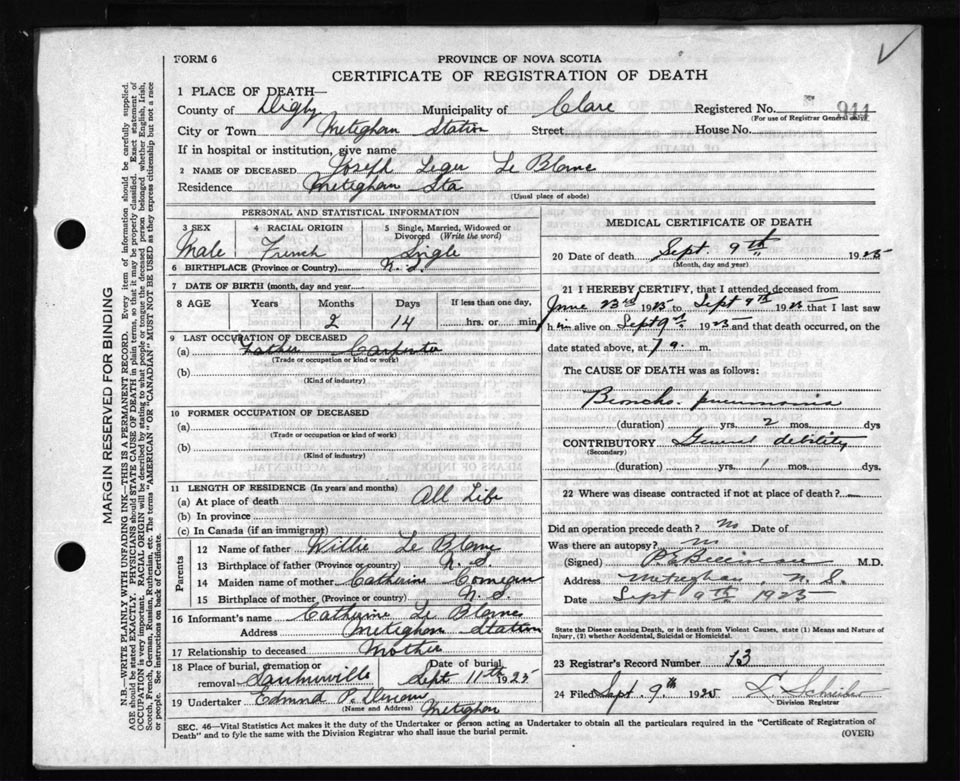 FORM 6
PROVINCE OF NOVA SCOTIA
CERTIFICATE OF REGISTRATION OF DEATH
1 PLACE OF DEATH—
County of Digby Municipality of Clare Registered No. 944
(For use of Registrar General only)
City or Town Meteghan Station Street House No.
If in hospital or institution, give name
2 NAME OF DECEASED Joseph Leger Le Blanc
Residence Meteghan Sta
(Usual place of abode)
PERSONAL AND STATISTICAL INFORMATION
3 SEX Male
4 RACIAL ORIGIN French
5 Single, Married, Widowed or Divorced (Write the word) Single
6 BIRTHPLACE (Province or Country) N. S.
7 DATE OF BIRTH (month, day and year)
8 AGE Years Months Days If less than one day,
2 14 hrs. or min
9 LAST OCCUPATION OF DECEASED
(a) Father Carpenter
(Trade or occupation or kind or work)
(b)
(Kind of industry)
10 FORMER OCCUPATION OF DECEASED
(a)
(Trade or occupation or kind of work)
(b)
(Kind of industry)
11 LENGTH OF RESIDENCE (In years and months)
(a) At place of death All Life
(b) In province
(c) In Canada (if an immigrant)
Parents
12 Name of father Willie Le Blanc
13 Birthplace of father (Province or country) N. S.
14 Maiden name of mother Catherine Comeau
15 Birthplace of mother (Province or country) N. S.
16 Informant's name Catherine Le Blanc
Address Meteghan Station
17 Relationship to deceased Mother
18 Place of burial, cremation or removal Date of burial
Sept 11th 1925
19 Undertaker Edmund P.
(Name and Address) Meteghan
MEDICAL CERTIFICATE OF DEATH
20 Date of death Sept. 9th 1925
(Month, day and year)
21 I HEREBY CERTIFY, that I attended deceased from
June 23rd 1925 to Sept 9th 1925 that I last saw
him alive on Sept 9th 1925 and that death occurred, on the
date stated above, at 7 a. m.
The CAUSE OF DEATH was as follows:
Broncho. pneumonia
(duration) yrs. 2 mos. dys
CONTRIBUTORY General debility
(Secondary)
(duration) yrs. 1 mos. dys.
22 Where was disease contracted if not at place of death?
Did an operation precede death? no Date of
Was there an autopsy? no
(Signed) M.D.
Address Meteghan, N. S.
Date Sept 9th 1925
State the Disease causing Death, or in death from Violent Causes, state (1) Means and Nature of
Injury, (2) whether Accidental, Suicidal or Homicidal.
23 Registrar's Record Number 13
24 Filed Sept. 9th 1925
Division Registrar
SEC. 46—Vital Statistics Act makes it the duty of the Undertaker or person acting as Undertaker to obtain all the particulars required in the "Certificate of Registration of
Death" and to fyle the same with the Division Registrar who shall issue the burial permit.
(OVER)
MARGIN RESERVED FOR BINDING
N.B.—WRITE PLAINLY WITH UNFADING INK—THIS IS A PERMANENT RECORD. Every item of information should be carefully supplied.
AGE should be stated EXACTLY. PHYSICIANS should STATE CAUSE OF DEATH in plain terms, so that it may be properly classified. Exact statement of
OCCUPATION is very important. RACIAL ORIGIN will be described by stating to what people or tongue the deceased person belonged whether English, Irish,
Scotch, French, German, Russian, Ruthenian, etc. The terms "AMERICAN" OR "CANADIAN" MUST NOT BE USED as they express citizenship but not a race
or people. See instructions on back of Certificate.